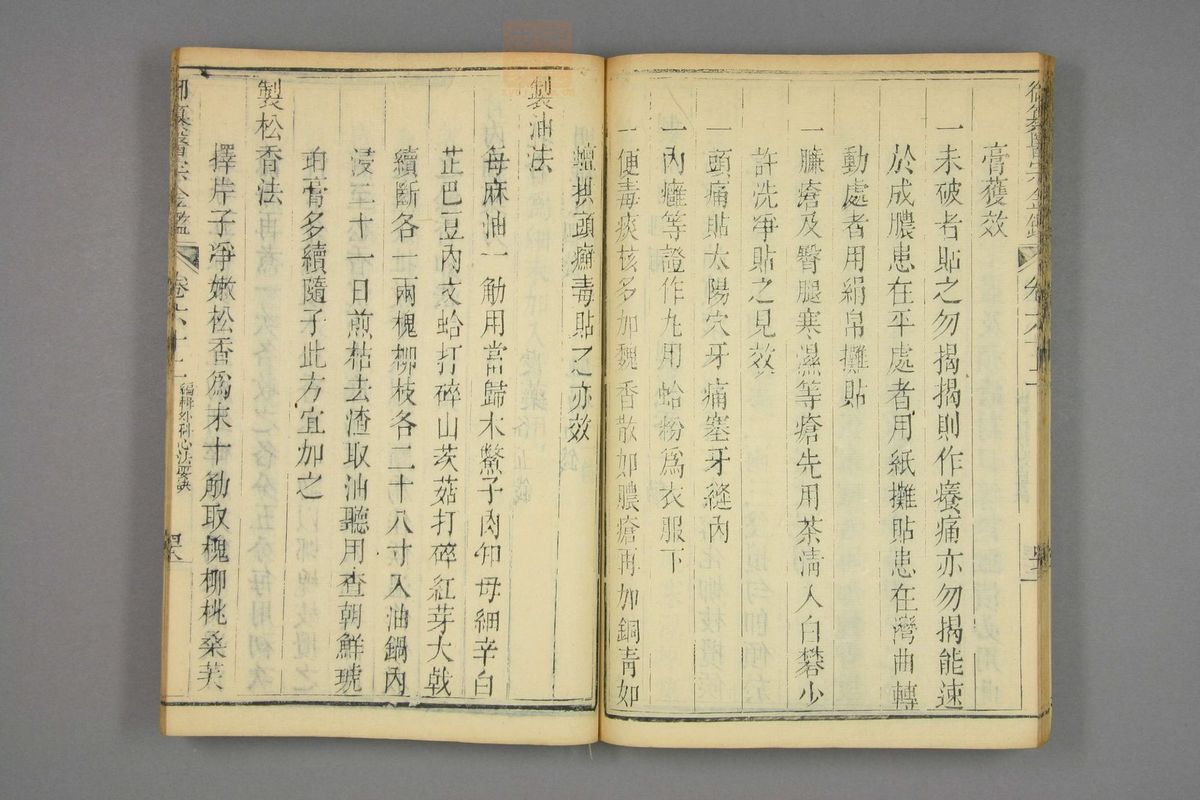 膏獲效
一未破者貼之勿揭揭則作癢痛亦勿揭能速
於成膿患在平處者用紙攤貼患在灣曲轉
動處者用絹帛攤貼
一臁瘡及臀腿寒濕等瘡先用茶清入白礬少
許洗淨貼之見效
一頭痛貼太陽穴牙痛塞牙縫內
一內癰等證作丸用蛤粉爲衣服下
一便毒痰核多加魏香散如膿瘡再加銅青如
蟮拱頭癬毒貼之亦效
製油法
每麻油一觔用當歸木鱉子肉知母細辛白
芷巴豆肉文蛤打碎山茨菇打碎紅芽大戟
續斷各一兩槐柳枝各二十八寸入油鍋內
浸二十一日煎枯去渣取油聽用查朝鮮琥
珀膏多續隨子此方宜加之
製松香法
擇片子淨嫩松香爲末十觔取槐柳桃桑芙
御纂醫宗金鑑
卷六十二
編輯外科心法要訣